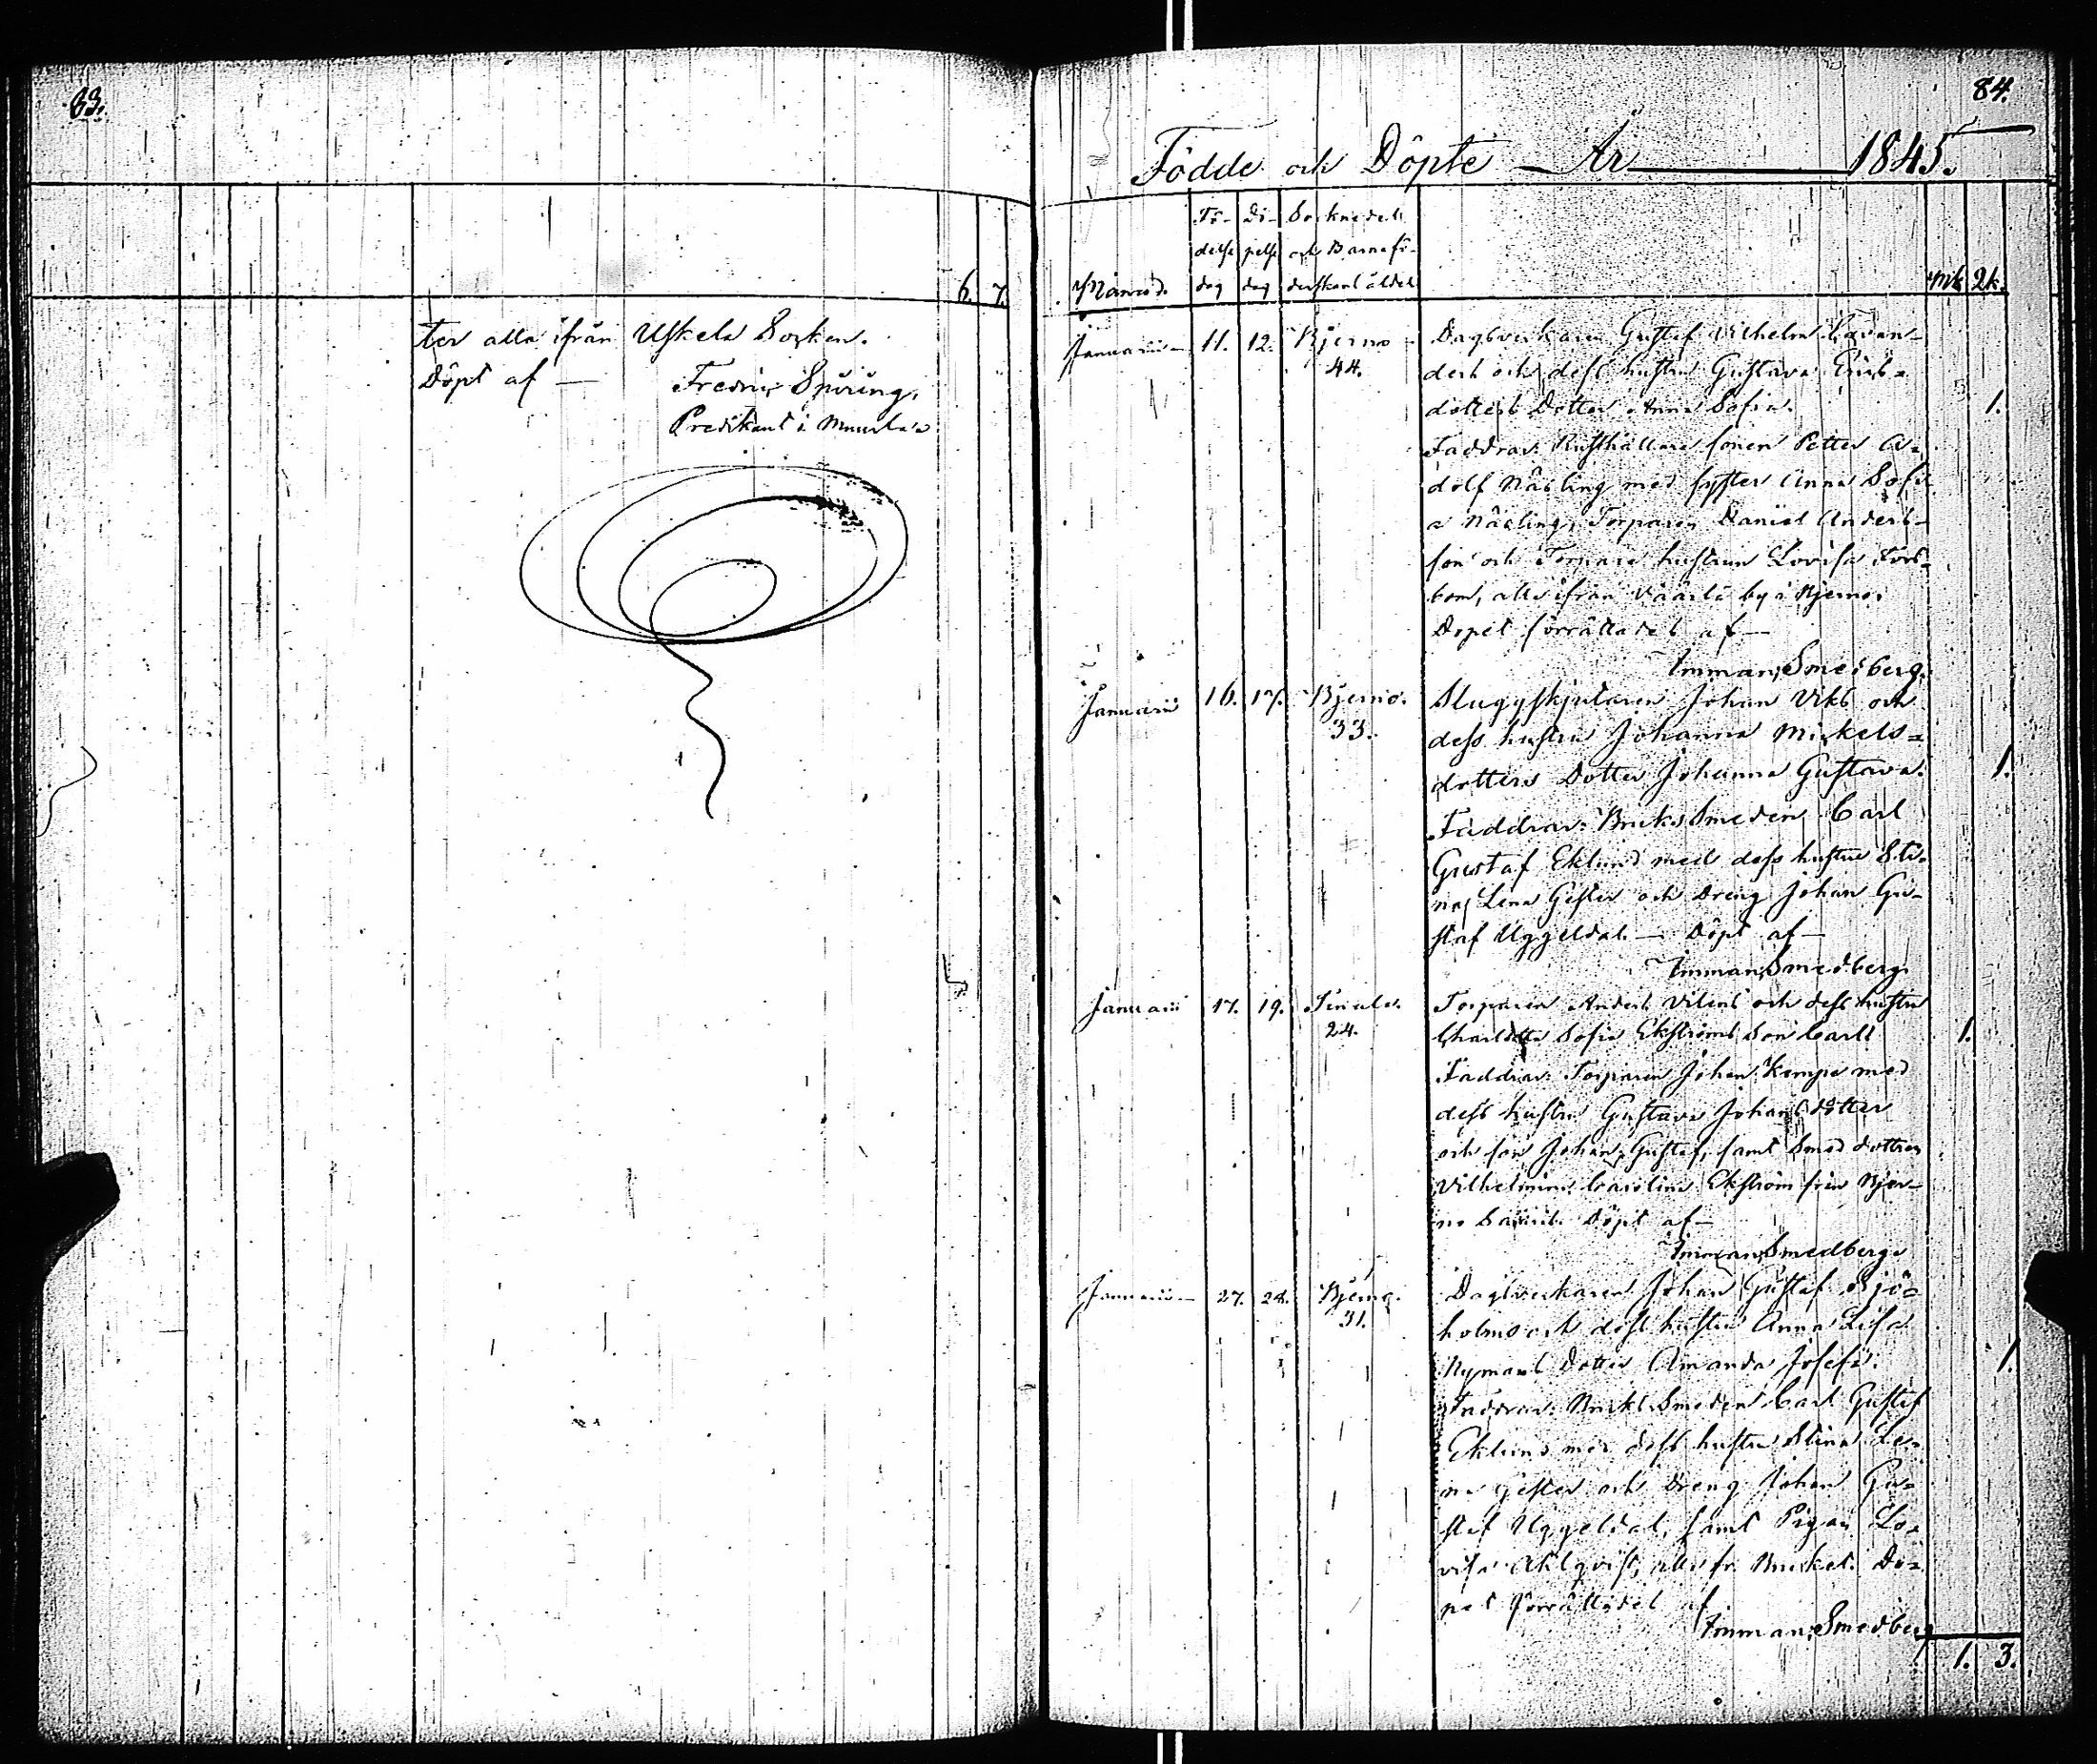 83.
6. 7.
ter alla ifrån Uskela Socken.
Döpt af — Fredric Spöring,
Predikant i Muurla
84.
Födde och Döpte — År — 1845.
Månad. Fö- delse dag Dö- pelse dag Sockne del och Barnafö- derskans ålder Mk Qk.
Januarii 11. 12. Bjerno 44.
Dagsverkaren Gustaf Vilhelm
ders och dess hustru Gustava Eriks-
dotters Dotter Anna Sofia. 1.
Faddrar: Rusthållare sonen Petter A-
dolf Nääling med syster Anna Sofi-
a Nääling, Torparen Daniel Anders-
son och Torpare hustrun Lovisa
bom, alla ifrån by i Bjerno.
Dopet förrättades af —
Imman. Smedberg.
Januarii 16. 17. Bjerno. 33.
Sluggskjutaren Johan Viks och
dess hustru Johanna Mickels-
dotters Dotter Johanna Gustava. 1.
Faddrar: Bruks Smeden Carl
Gustaf Eklund med dess hustru Sti-
na Lena Gester och Dreng Johan Gu-
staf Uggeldal. — Döpt af —
Imman. Smedberg
Januarii 17. 19. 24.
Torparen Anders Vilens och dess hustru
Charlotta Sofia Ekströms Son Carl 1.
Faddrar: Torparen Johan Kempe med
dess hustru Gustava Johansdotter
och son Johan Gustaf, samt Smed dottren
Vilhelmina Carolina Ekström från Bjer-
no Döpt af —
Imman. Smedberg
Januarii — 27. 28. Bjerno. 31.
Dagsverkaren Johan Gustaf Sjö-
holms och dess hustru Anna Lisa
Nymans Dotter Amanda Josefa. 1.
Faddrar: Bruks Smeden Carl Gustaf
Eklund med dess hustru Stina Le-
na Gester och Dreng Johan Gu-
staf Uggeldal, samt Pigan Lo-
visa Ahlqvist, alla fr. Bruket. Do-
pet förrättades af
Imman. Smedberg
1. 3.